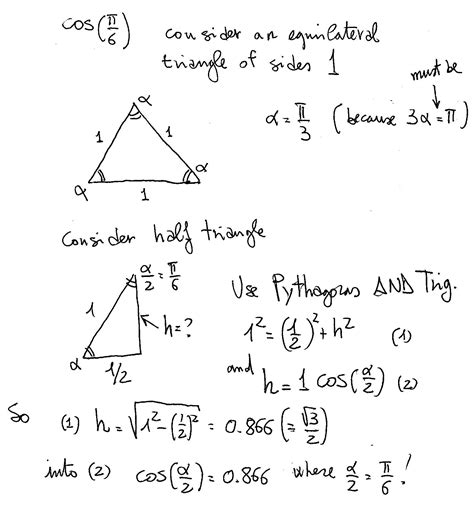 cos(π/6) consider an equilateral
triangle of sides 1
must be
α = π/3 (because 3α = π)
α
1 1
α α
1
Consider half triangle
α/2 = π/6
1
h = ?
α
1/2
Use Pythagoras AND Trig.
1² = (1/2)² + h² (1)
and h = 1 cos(α/2) (2)
So (1) h = √(1² - (1/2)²) = 0.866 (= √3/2)
into (2) cos(α/2) = 0.866 where α/2 = π/6 !